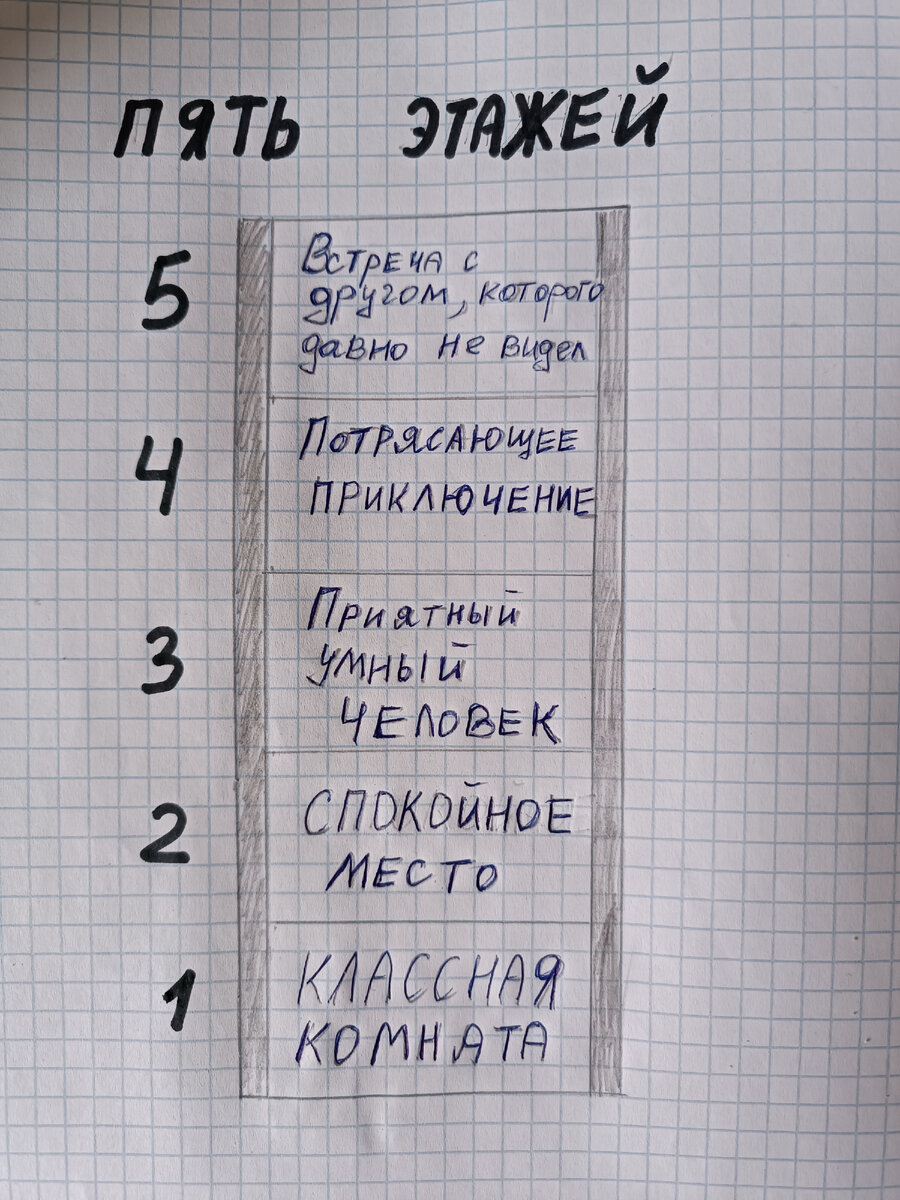 ПЯТЬ ЭТАЖЕЙ
5
Встреча с
другом, которого
давно не видел
4
Потрясающее
приключение
3
Приятный
умный
человек
2
СПОКОЙНОЕ
МЕСТО
1
КЛАССНАЯ
КОМНАТА